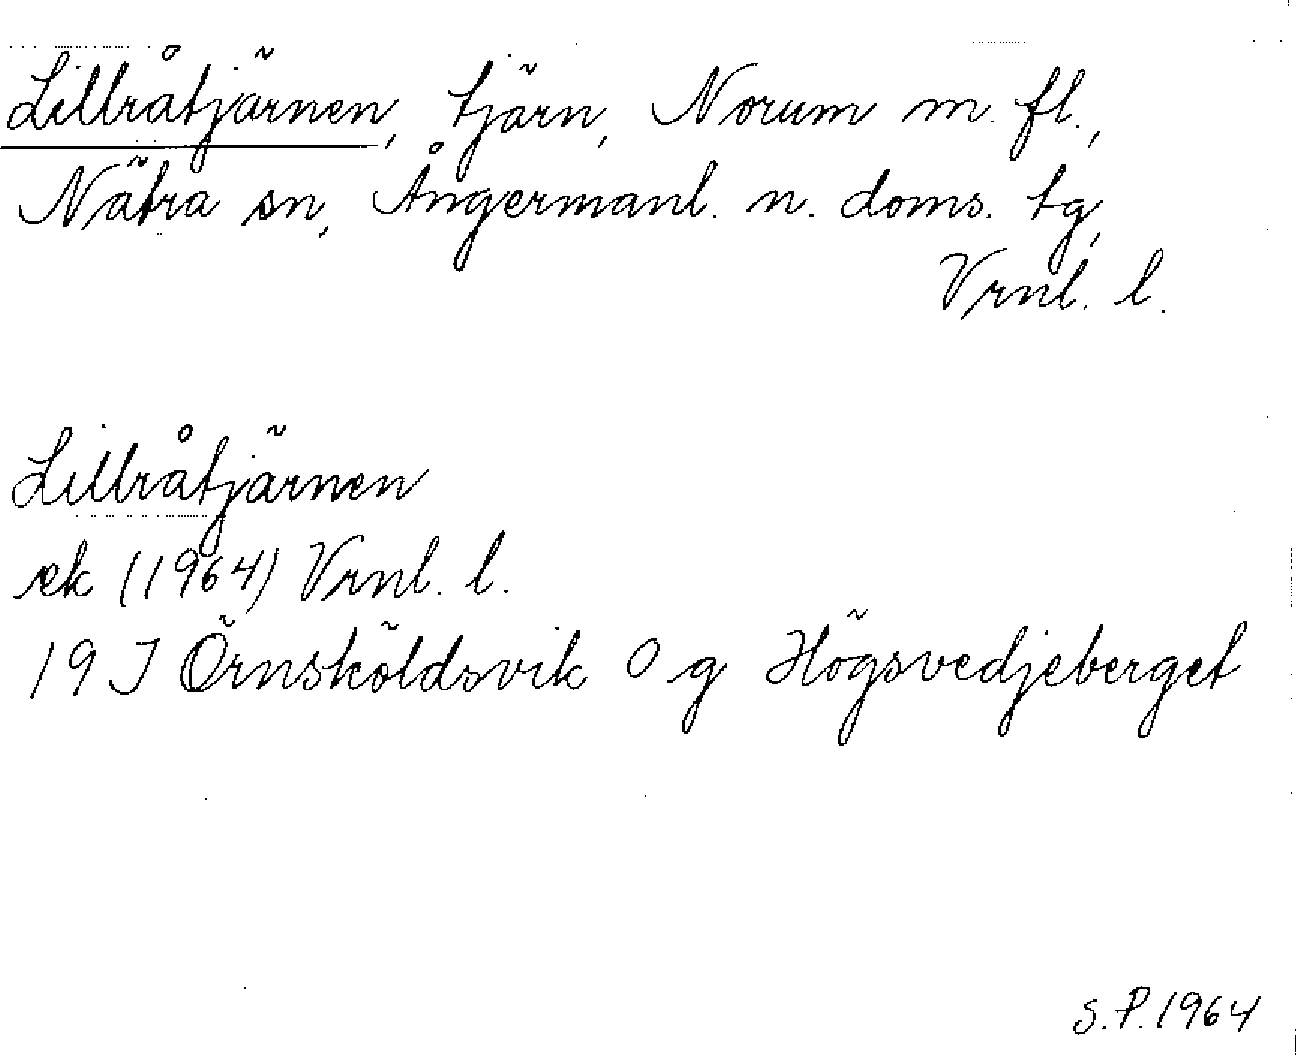 Lillråtjärnen, tjärn, Norum m. fl.,
Nätra sn, Ångermanl. n. doms. tg,
Vrnl. l.
Lillråtjärnen
ek (1964) Vrnl. l.
19 J Örnsköldsvik 0 g Högsvedjeberget
S.P. 1964